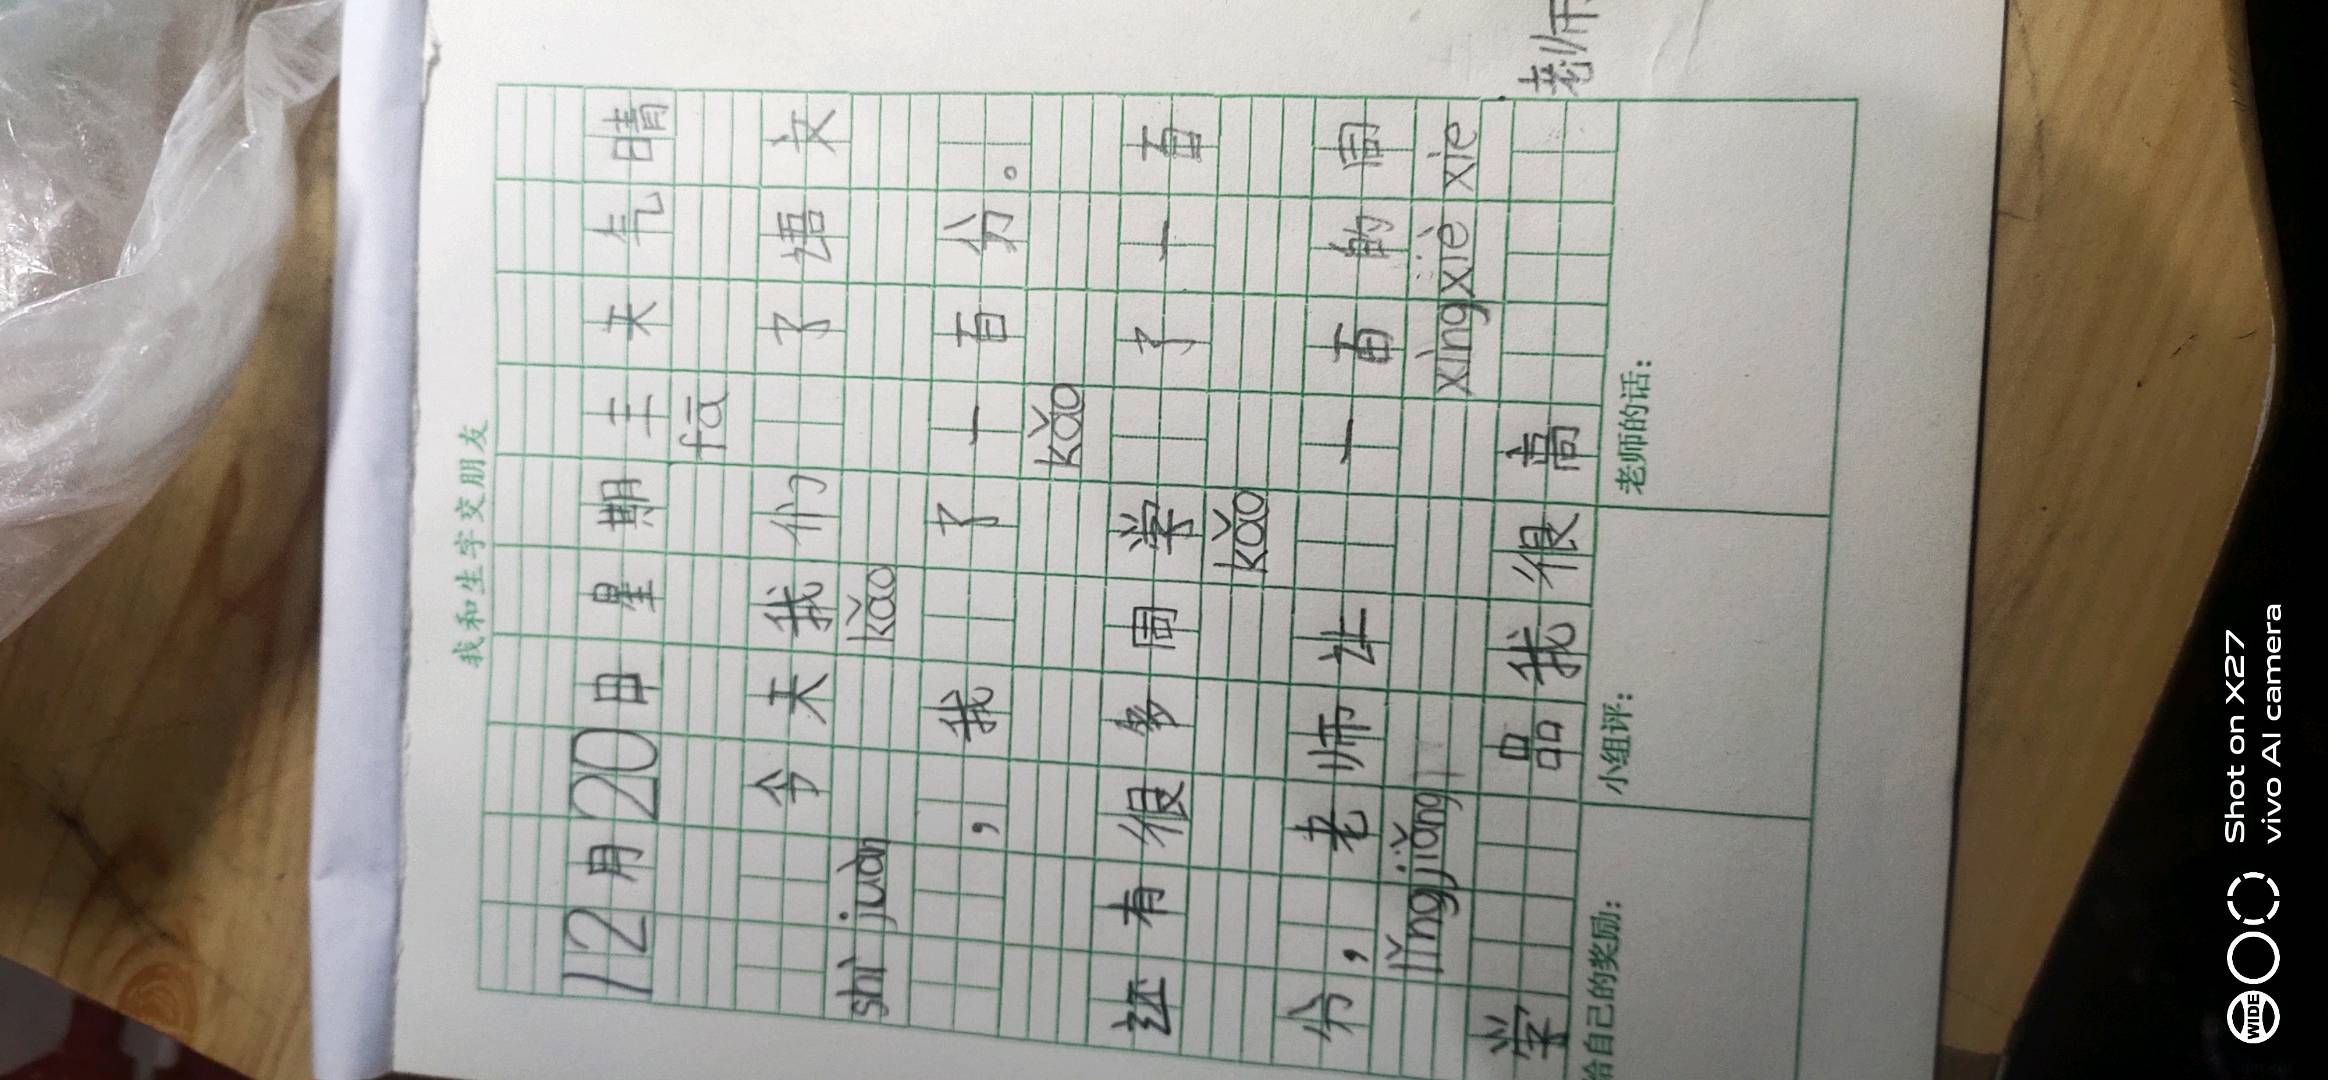 我和生字交朋友
12月20日星期五天气晴
fā
今天我们 了语文
shì juàn kǎo
,我 了一百分。
kǎo
还有很多同学 了一百
kǎo
分,老师让 一百的同
lǐngjiǎng xìngxiè xie
学 品我很高
老师
给自己的奖励:
小组评:
老师的话:
Shot on X27
vivo AI camera
WIDE